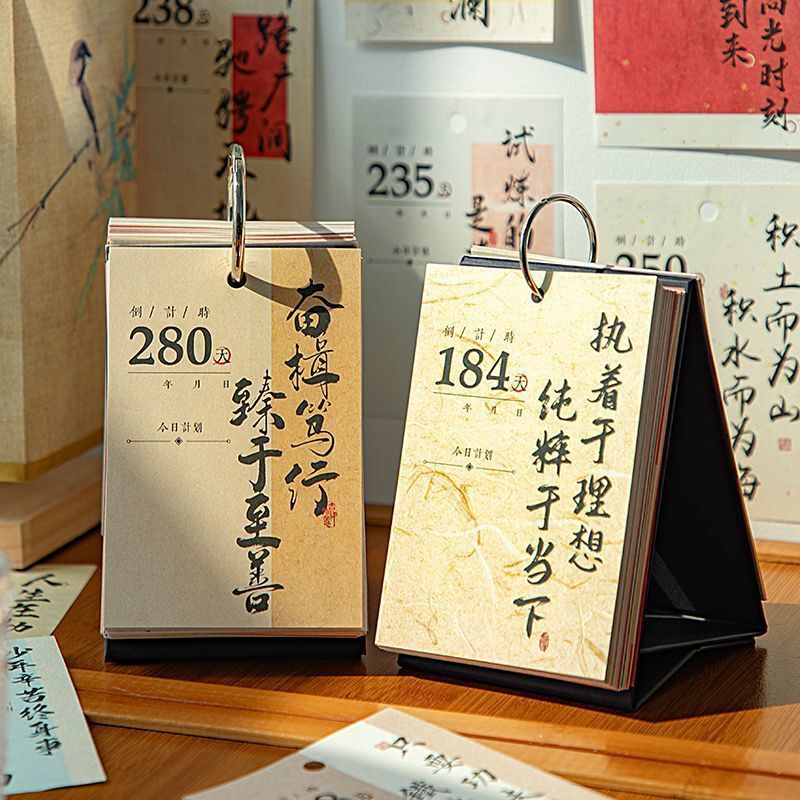 238天
驰骋
澜
高光时刻
到来
倒/計/時
235天
试炼的
是
倒/計/時
250
积土而为山
积水而为海
倒/計/時
280天
年 月 日
今日計划
奋楫笃行
臻于至善
倒/計/時
184天
年 月 日
今日計划
执着于理想
纯粹于当下
少年辛苦终身事
只要功夫